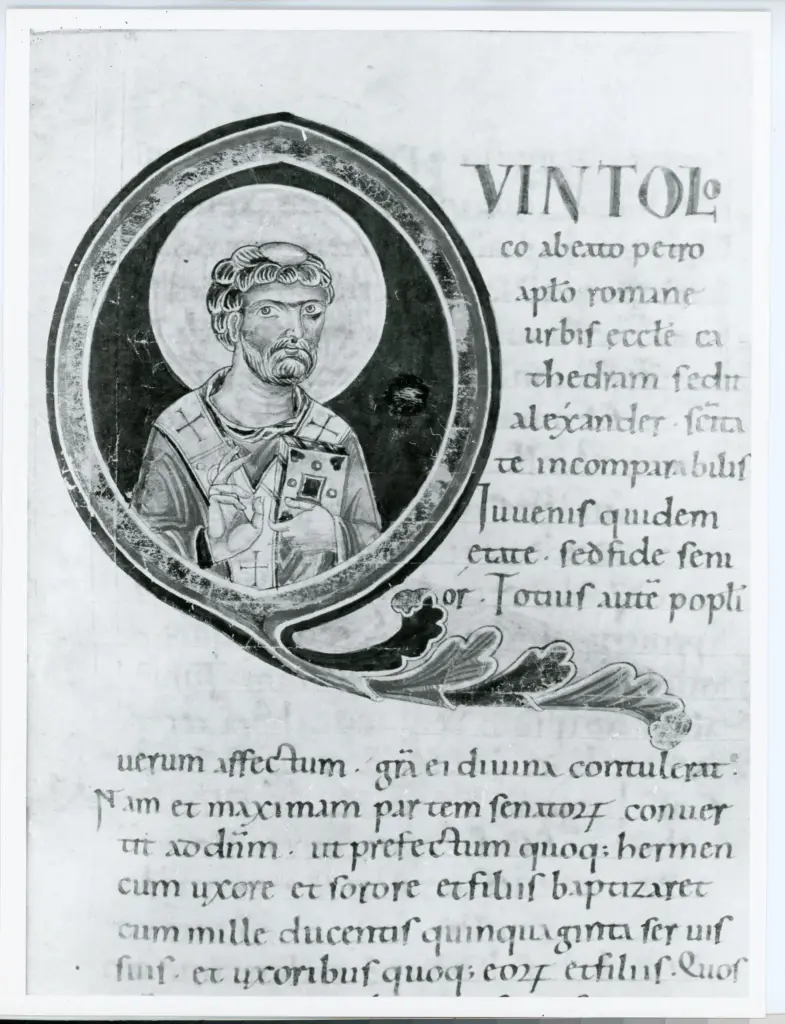 QVINTO LOCO
co abeato petro
aplo romanę
urbis ęccłe ca
thedram sedit
alexander. scīta
te incomparabilis
Iuuenis quidem
ętate. sed fide seni
or. Totius autē popli
uerum affectum. grā ei diuina contulerat.
Nam et maximam partem senatoꝝ conuer
tit ad dn̄m. ut prefectum quoq; hermen
cum uxore et sorore et filiis baptizaret
cum mille ducentis quinquaginta seruis
suis. et uxoribus quoq; eoꝝ et filiis. Quos